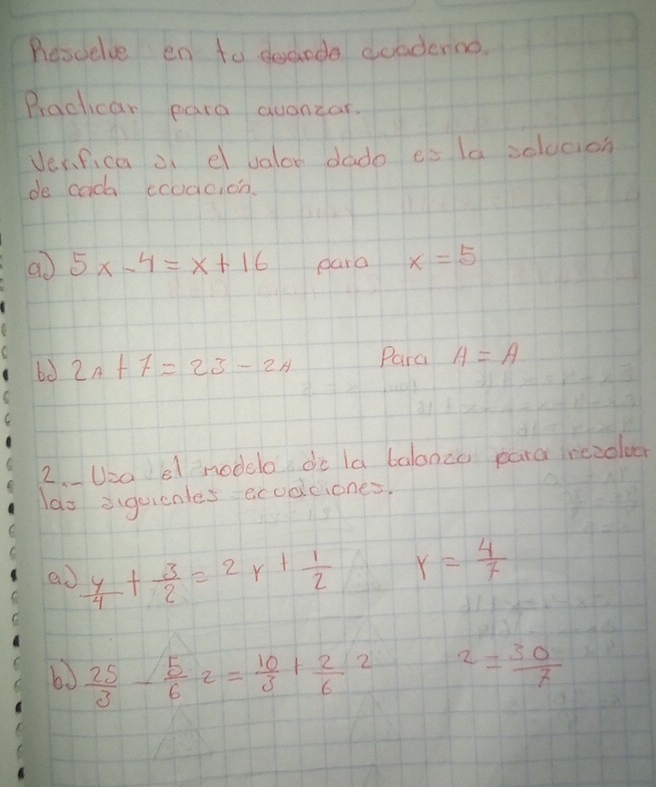 Resuelve en tu cuaderno.
Practicar para avanzar.
Verifica si el valor dado es la solución
de cada ecuación.
a) 5x - 4 = x + 16 para x = 5
b) 2A + 7 = 23 - 2A Para A = A
2.- Usa el modelo de la balanza para rezolver
las siguientes ecuaciones.
a) y/4 + 3/2 = 2y + 1/2 y = 4/7
b) 25/3 - 5/6 z = 10/3 + 2/6 z z = 30/7